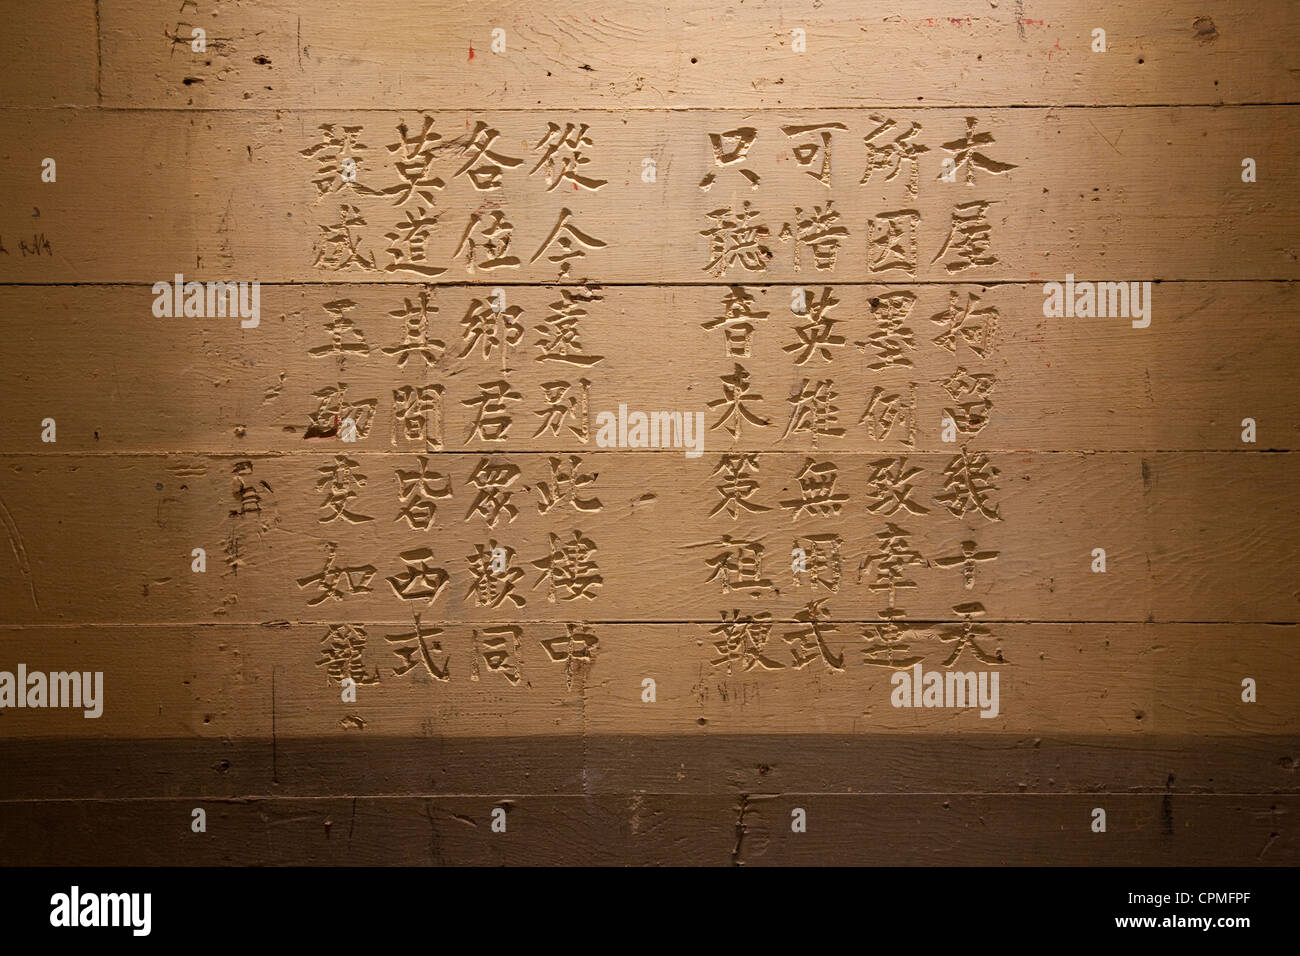 木屋拘留幾十天
所因墨例致牽連
可惜英雄無用武
只聽音來策祖鞭
從今遠別此樓中
各位鄉君眾歡同
莫道其間皆西式
設成玉砌變如籠
alamy
alamy
alamy
alamy
alamy
alamy
Image ID: CPMFPF
www.alamy.com